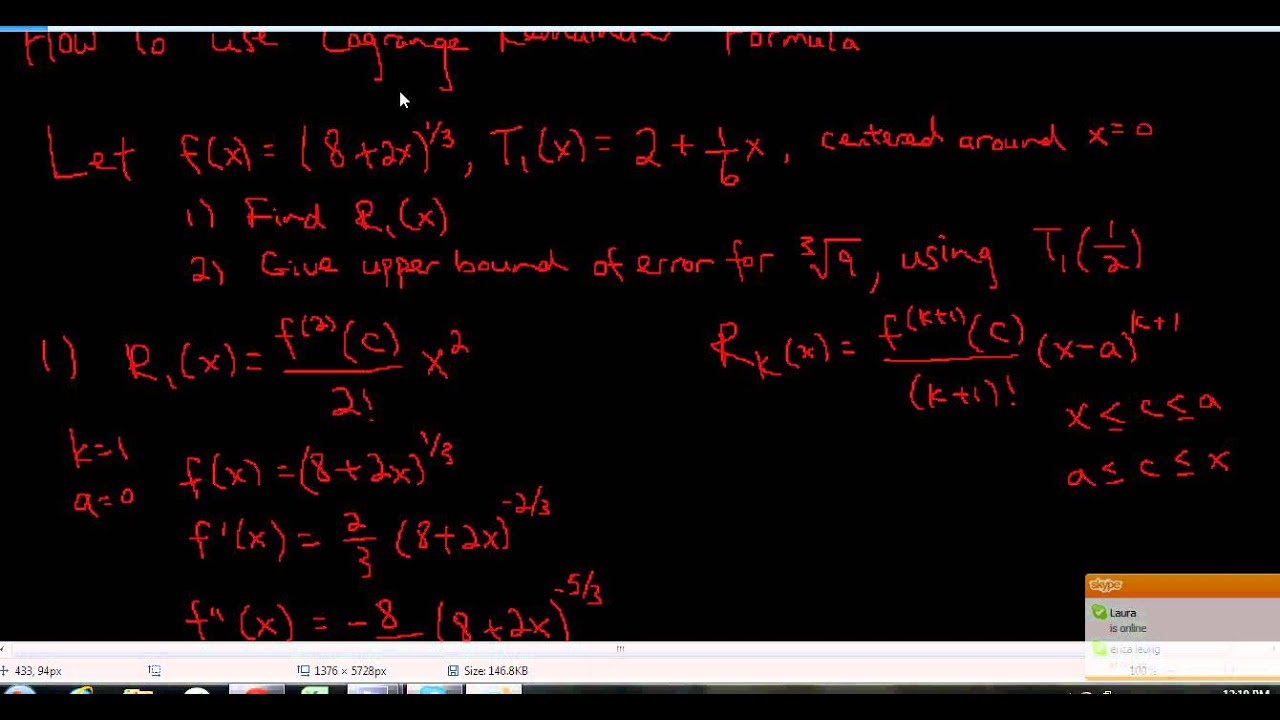 How to use Lagrange Remainder Formula
Let f(x) = (8+2x)^1/3, T₁(x) = 2 + 1/6 x, centered around x=0
1) Find R₁(x)
2) Give upper bound of error for ³√9, using T₁(1/2)
1) R₁(x) = f⁽²⁾(c)/2! x²
R_k(x) = f^(k+1)(c)/(k+1)! (x-a)^k+1
x ≤ c ≤ a
a ≤ c ≤ x
k=1
a=0
f(x) = (8+2x)^1/3
f'(x) = 2/3 (8+2x)^-2/3
f"(x) = -8 (8+2x)^-5/3
skype
Laura
is online
erica leung
433, 94px
1376 × 5728px
Size: 146.8KB
100%